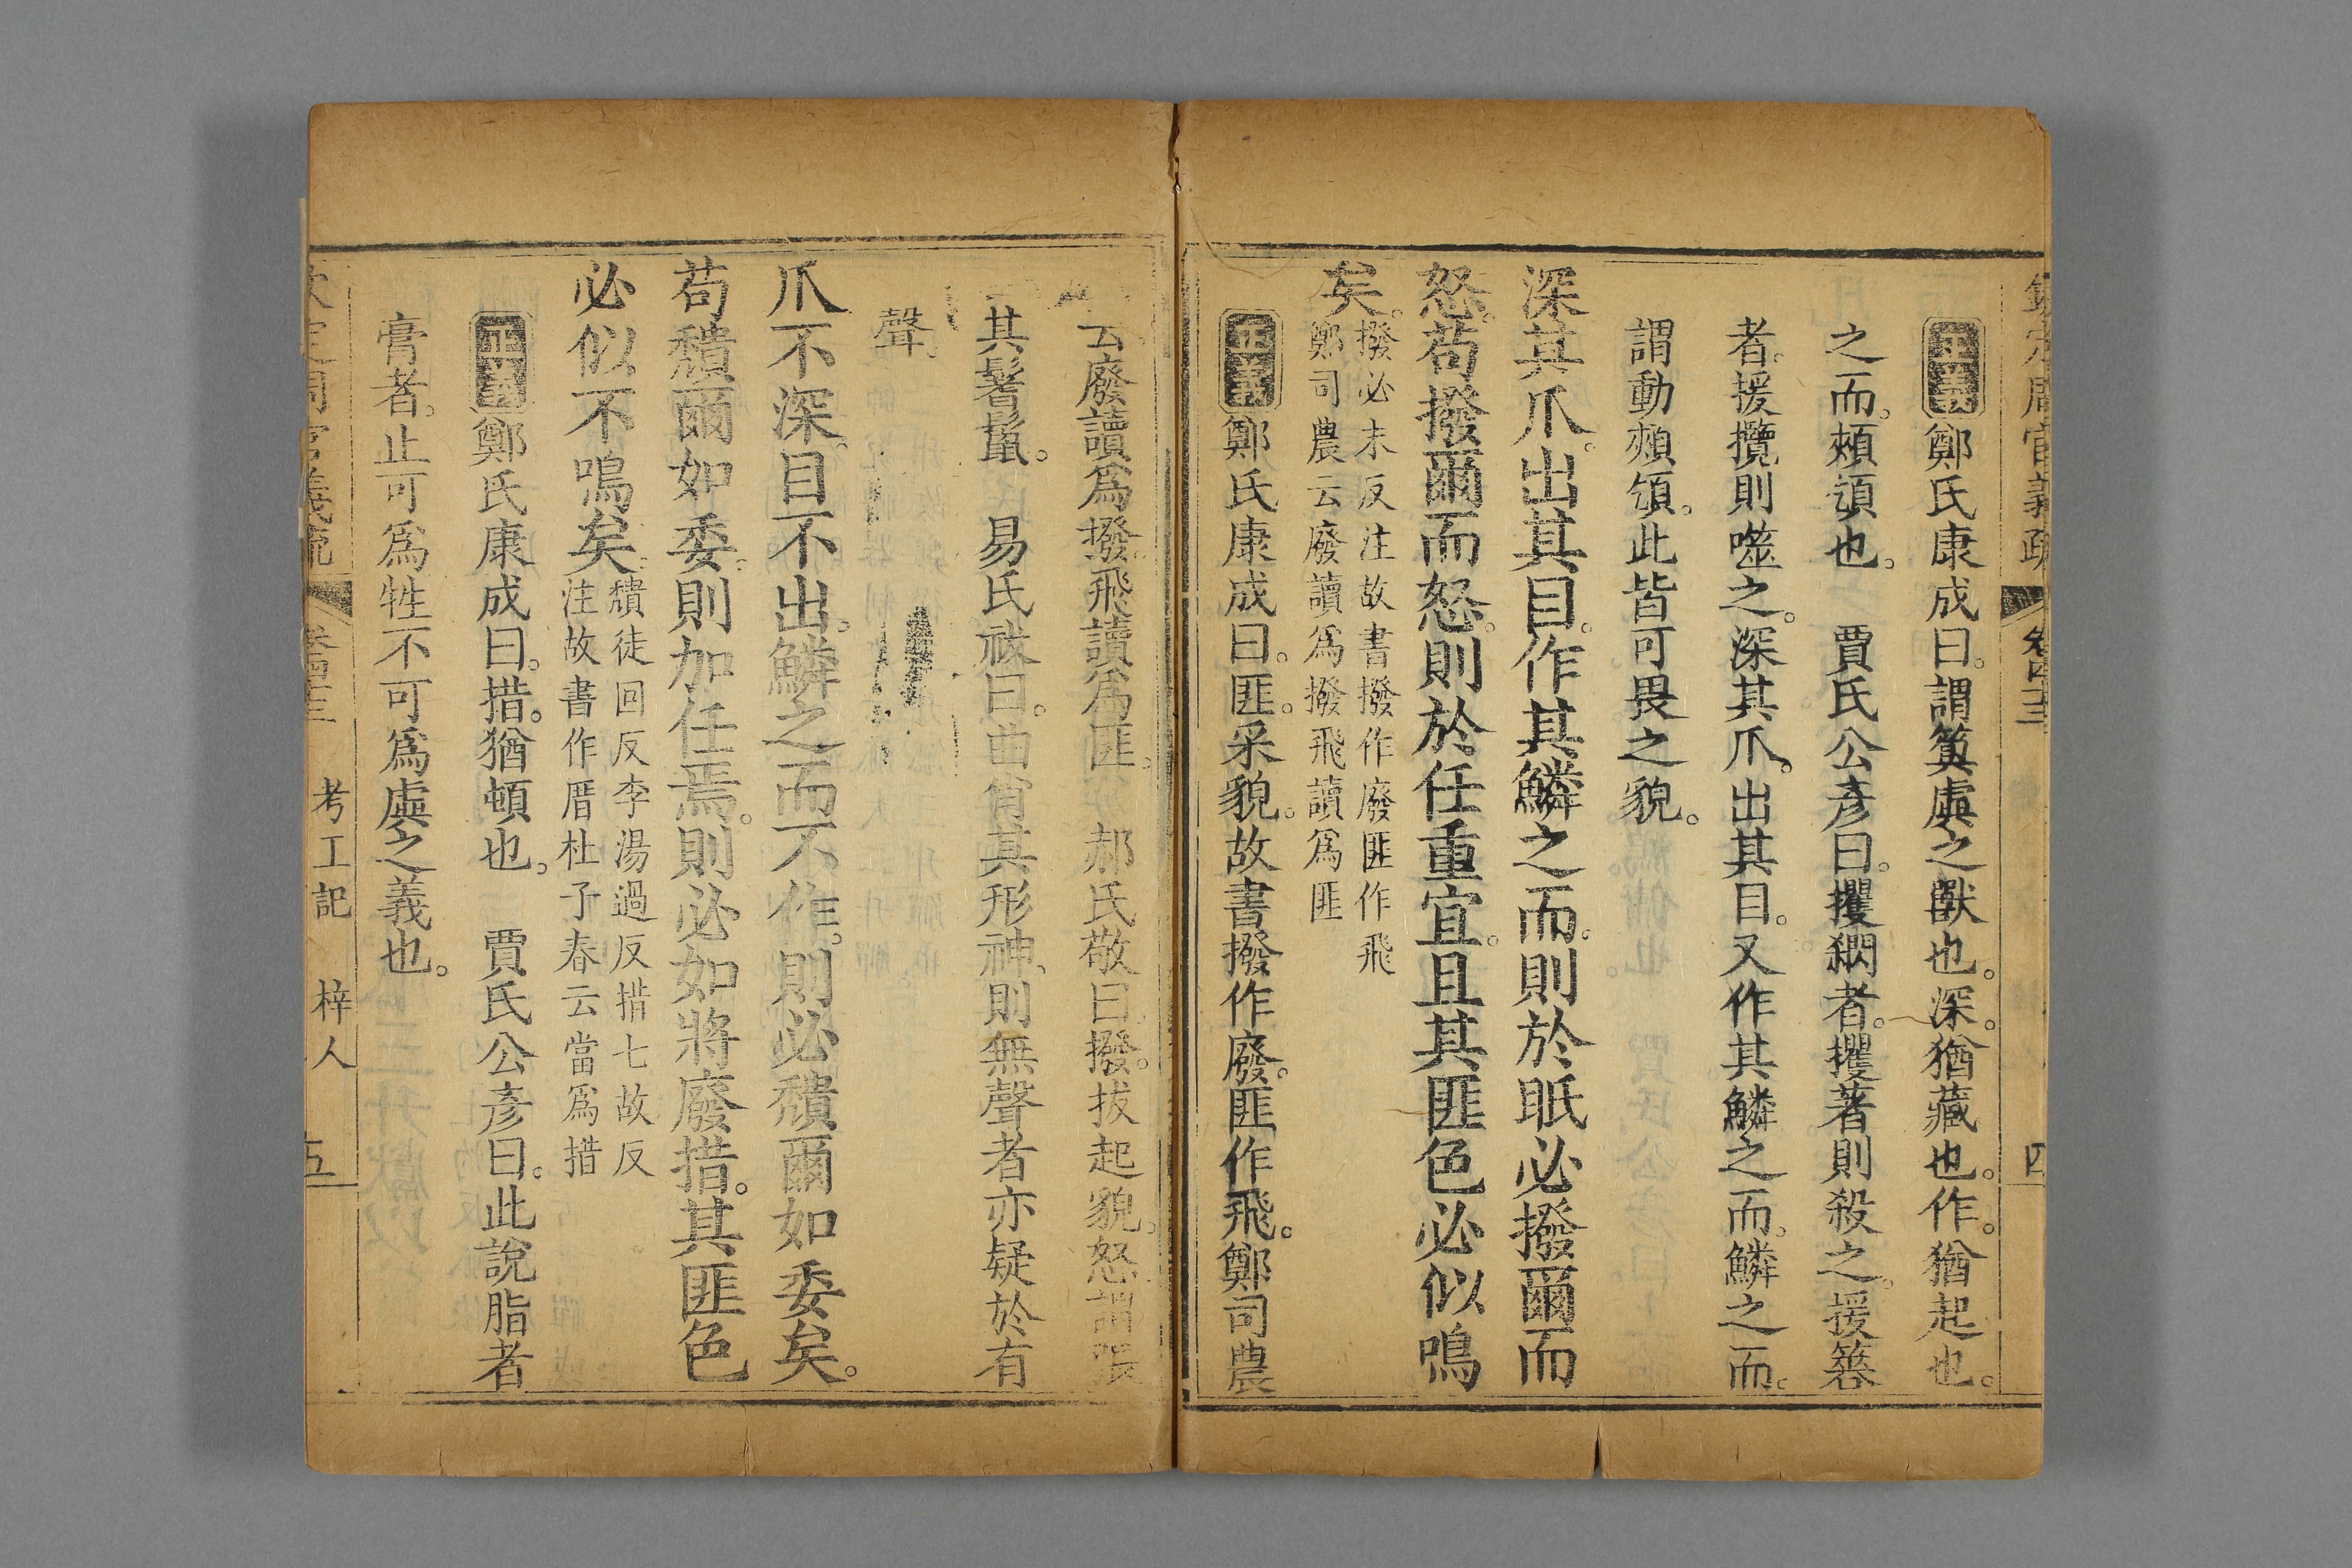 欽定周官義疏 卷四十三 四
正義鄭氏康成曰。謂筍虡之獸也。深。猶藏也。作。猶起也。
之而。頰頷也。 賈氏公彥曰。攫閷者。攫著則殺之。援簭
者。援攬則噬之。深其爪。出其目。又作其鱗之而。鱗之而。
謂動頰頷。此皆可畏之貌。
深其爪。出其目。作其鱗之而。則於眡必撥爾而
怒。苟撥爾而怒。則於任重宜。且其匪色必似鳴
矣。
撥必末反注故書撥作廢匪作飛
鄭司農云廢讀爲撥飛讀爲匪
正義鄭氏康成曰。匪。采貌。故書撥作廢。匪作飛。鄭司農
云廢讀爲撥。飛讀爲匪。 郝氏敬曰。撥。拔起貌。怒謂張
其鬐鬣。 易氏祓曰。曲肖其形神。則無聲者亦疑於有
聲。
爪不深。目不出。鱗之而不作。則必穨爾如委矣。
苟穨爾如委。則加任焉。則必如將廢措。其匪色
必似不鳴矣。
穨徒回反李湯過反措七故反
注故書作厝杜子春云當爲措
正義鄭氏康成曰。措。猶頓也。 賈氏公彥曰。此說脂者
膏者。止可爲牲不可爲虡之義也。
欽定周官義疏 卷四十三 考工記 梓人 五